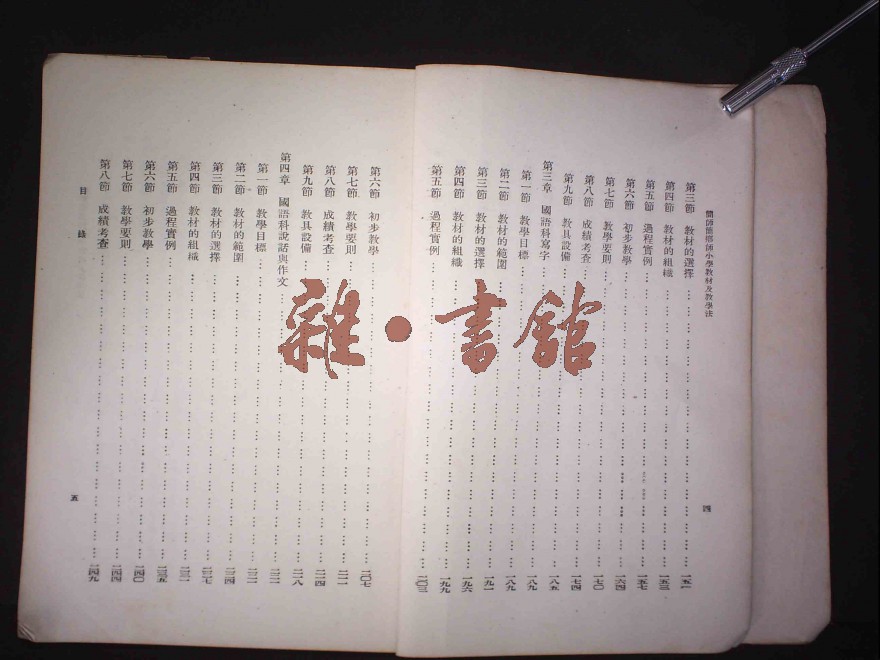 簡師簡鄉師小學教材及教學法
四
第三節 教材的選擇 一五一
第四節 教材的組織 一五三
第五節 過程實例 一五七
第六節 初步教學 一六四
第七節 教學要則 一七〇
第八節 成績考查 一七四
第九節 教具設備 一八五
第三章 國語科寫字 一八九
第一節 教學目標 一八九
第二節 教材的範圍 一八九
第三節 教材的選擇 一九一
第四節 教材的組織 一九六
第五節 過程實例 一九九
第六節 初步教學 二〇七
第七節 教學要則
第八節 成績考查 二一四
第九節 教具設備 二一八
第四章 國語科說話與作文
第一節 教學目標
第二節 教材的範圍 二二四
第三節 教材的選擇 二二七
第四節 教材的組織
第五節 過程實例 二三五
第六節 初步教學 二四〇
第七節 教學要則 二四四
第八節 成績考查 二四九
目錄
五
雜·書館